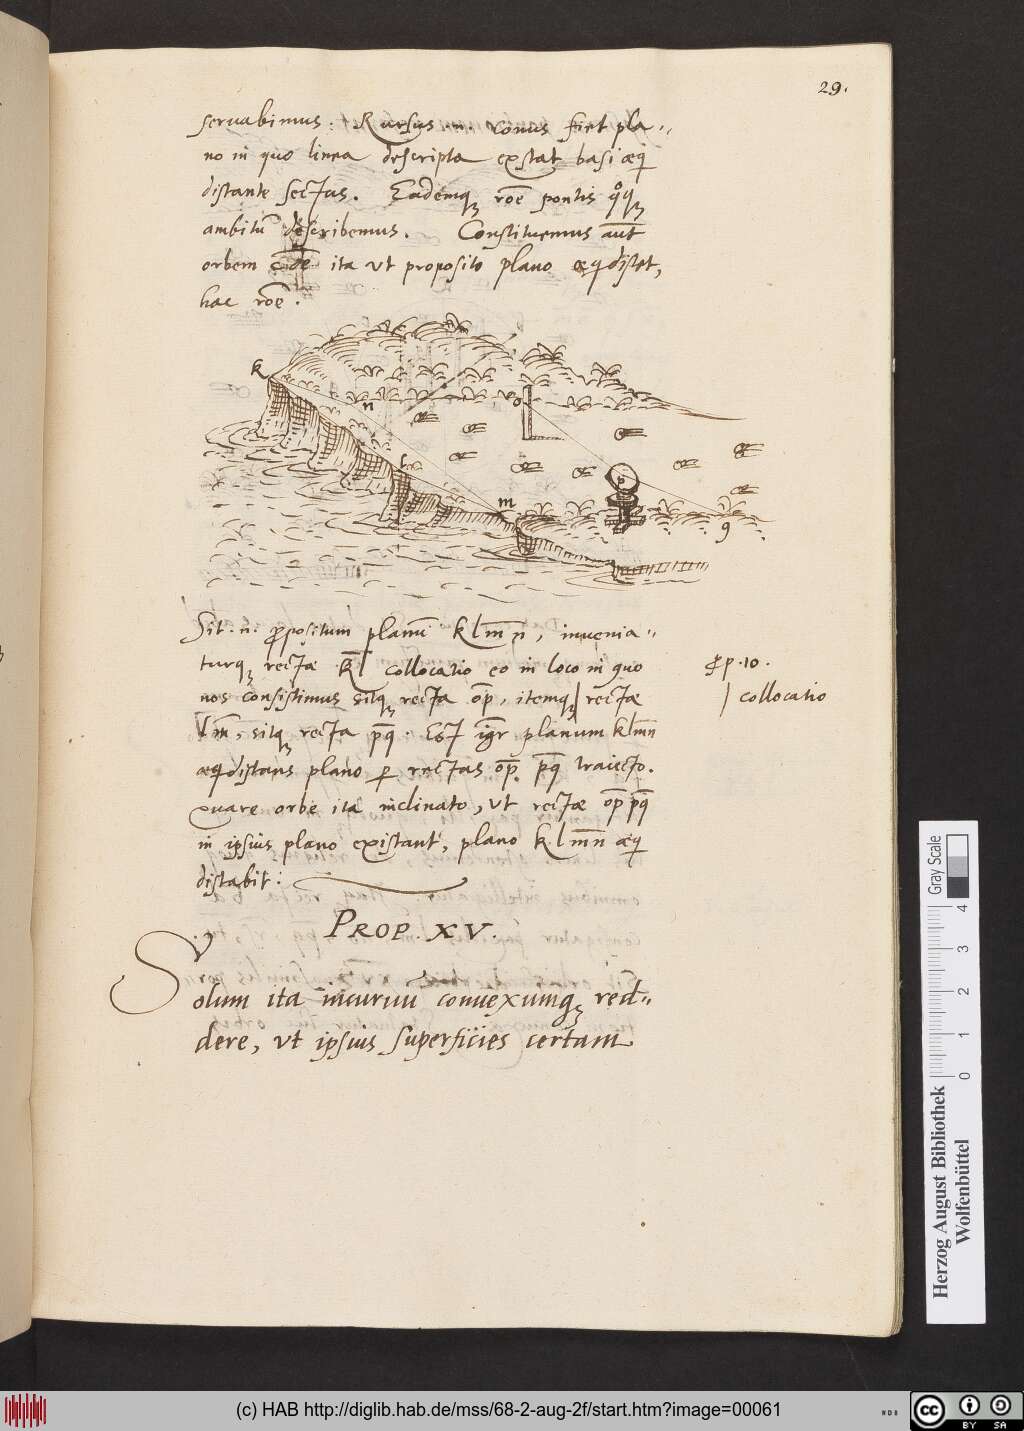 29.
seruabimus: Rursus .n. conus fiet pla-
no in quo linea descripta exstat basi æq̄
distante sectus. Eademq; roē pontis qͦq;
ambitū describemus. Constituemus aut̄
orbem c̄de ita ut proposito plano æqdistet,
hac roē.
k
n
o
l
m
p
q
Sit .n. ꝓpositum planū k l m n, inuenia-
turq; rectæ k̄l collocatio eo in loco in quo
nos consistimus sitq; recta ōp, itemq; | rectæ
l̄m, sitq; recta p̄q. Est igr̄ planum klm̄n
æqdistans plano ꝑ rectas ōp, p̄q traiecto.
Quare orbe ita inclinato, ut rectæ ōp p̄q
in ipsius plano existant, plano k l m̄n æq̄
distabit:
ꝓp. 10.
| collocatio
PROP. XV.
Solum ita incuruū conuexumq; red-
dere, ut ipsius superficies certam
Gray Scale
0 1 2 3 4
Herzog August Bibliothek
Wolfenbüttel
(c) HAB http://diglib.hab.de/mss/68-2-aug-2f/start.htm?image=00061
cc
BY SA